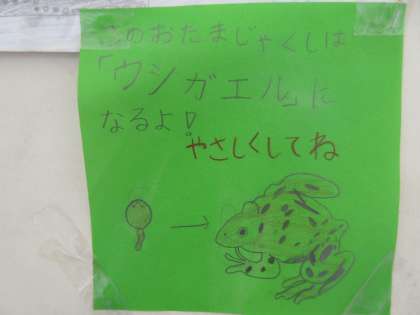 このおたまじゃくしは
「ウシガエル」に
なるよ!
やさしくしてね